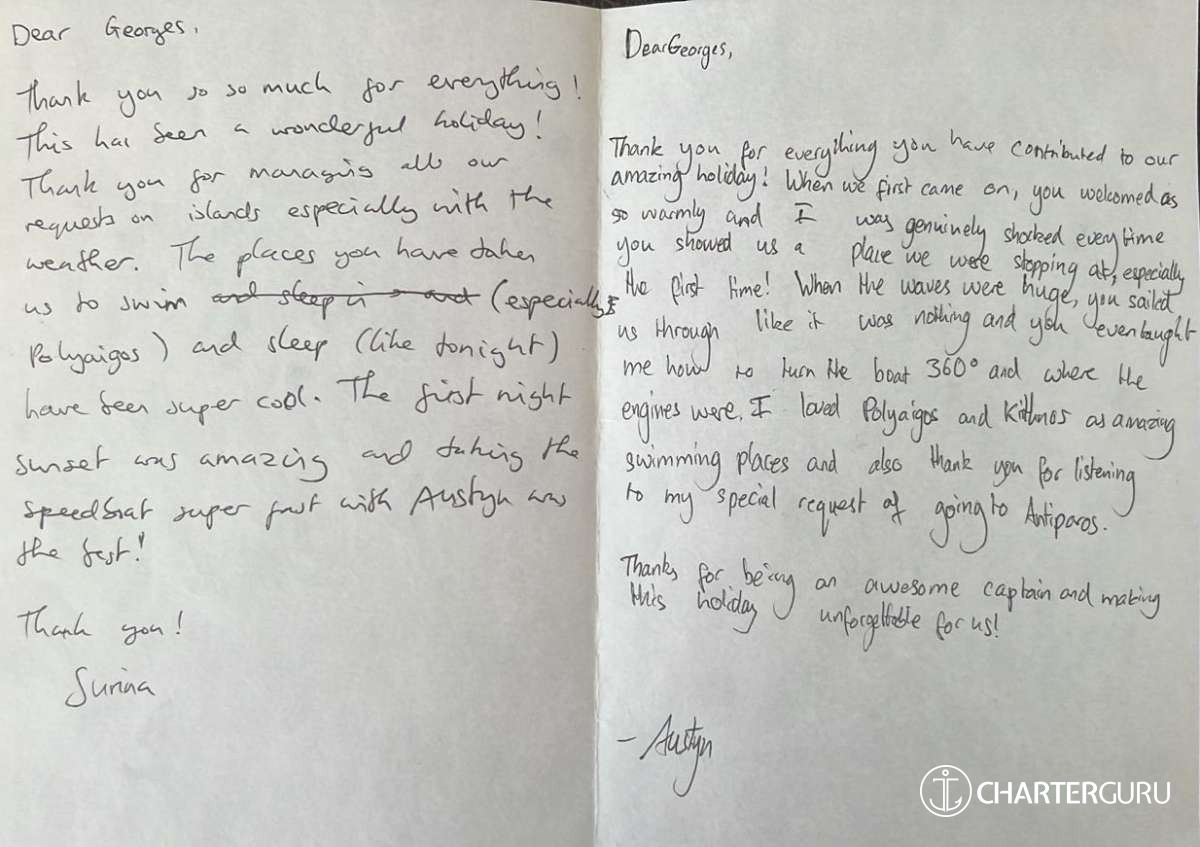 Dear Georges,
Thank you so so much for everything!
This has been a wonderful holiday!
Thank you for managing all our
requests on islands especially with the
weather. The places you have taken
us to swim and sleep in (especially
Polyaigos) and sleep (like tonight)
have been super cool. The first night
sunset was amazing and taking the
speedboat super fast with Austyn was
the best!
Thank you!
Surina
Dear Georges,
Thank you for everything you have contributed to our
amazing holiday! When we first came on, you welcomed us
so warmly and I was genuinely shocked everytime
you showed us a place we were stopping at, especially
the first time! When the waves were huge, you sailed
us through like it was nothing and you even taught
me how to turn the boat 360° and where the
engines were. I loved Polyaigos and Kithnos as amazing
swimming places and also thank you for listening
to my special request of going to Antiparos.
Thanks for being an awesome captain and making
this holiday unforgettable for us!
- Austyn
CHARTERGURU